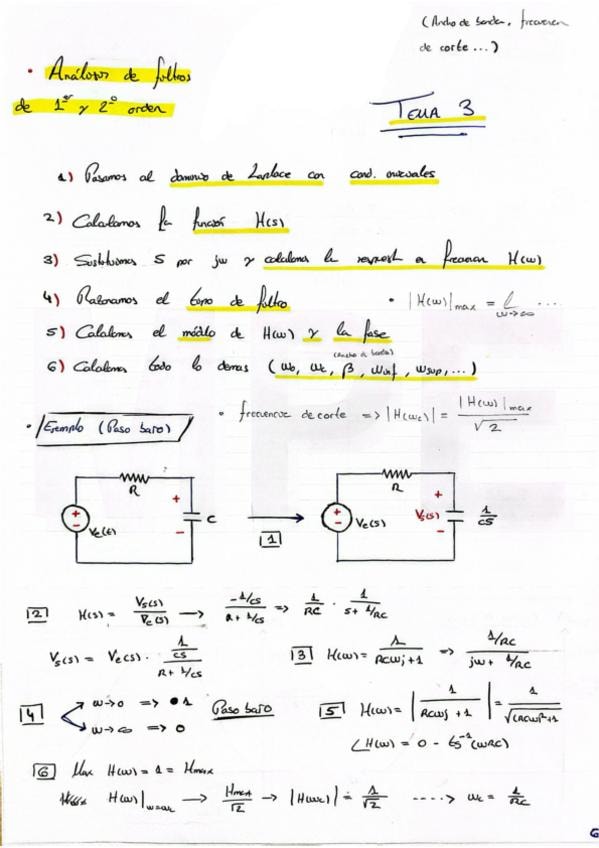 (Ancho de banda, frecuencia
de corte...)
• Análisis de filtros
de 1er y 2º orden
TEMA 3
1) Pasamos al dominio de Laplace con cond. iniciales
2) Calculamos la función H(s)
3) Sustituimos S por jw y calculamos la respuesta en frecuencia H(w)
4) Razonamos el tipo de filtro
• |H(w)|max = L w→∞ ....
5) Calculamos el módulo de H(w) y la fase
(Ancho de banda)
6) Calculamos todo lo demas (w0, wc, β, winf, wsup, ...)
• frecuencia de corte => |H(wc)| = |H(w)|max / √2
• Ejemplo (Paso bajo)
R
+
-
Ve(t)
+
-
C
1
R
+
-
Ve(s)
+
Vs(s)
-
1/cs
2 H(s) = Vs(s)/Ve(s) → -1/cs / R + 1/cs => 1/RC · 1/S + 1/RC
Vs(s) = Ve(s) · 1/cs / R + 1/cs
3 H(w) = 1/RCwj+1 => 1/RC / jw + 1/RC
4 w→0 => 1
w→∞ => 0
Paso bajo
5 H(w) = |1/RCwj + 1| = 1/√(RCw)²+1
∠H(w) = 0 - tg⁻¹(wRC)
6 Max H(w) = 1 = Hmax
H(w)|w=wc → Hmax/√2 → |H(wc)| = 1/√2 ....→ wc = 1/RC
6